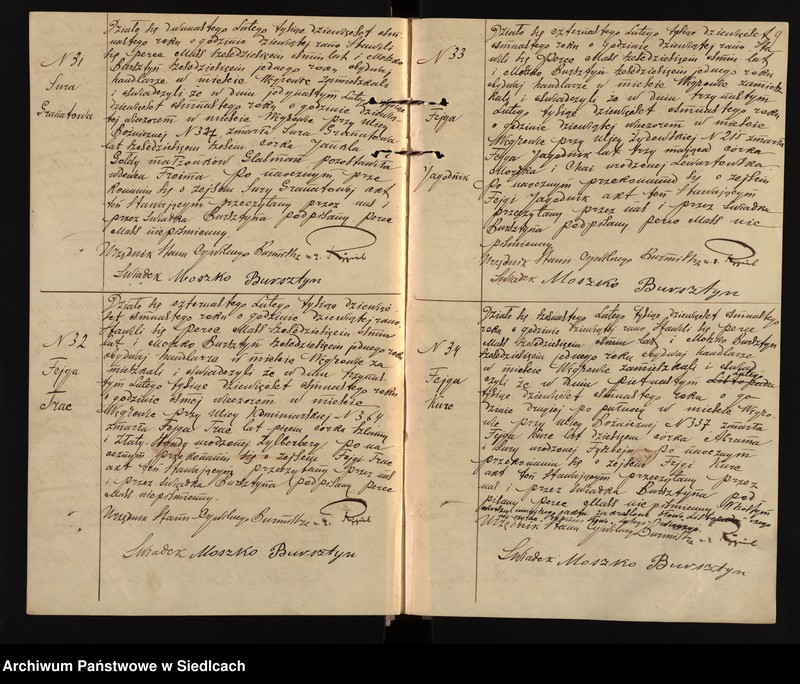 N 31
Sura
Granatowa
Działo się dwunastego Lutego tysiąc dziewięćset ósm-
nastego roku o godzinie dziewiątej rano Stawili
się Perec Mals sześćdziesięciu ósmiu lat i Moszko
Bursztyn sześćdziesięciu jednego roku obydwaj
handlarze w mieście Węgrowie zamieszkali
i oświadczyli, że w dniu jedynastym Lutego tysiąc
dziewięćset ósmnastego roku o godzinie dziewią-
tej wieczorem w mieście Węgrowie przy ulicy
Bożnicznej N 327 zmarła Sura Granatowa
lat sześćdziesiąt sześć córka Jankla i
Goldy małżonków Glatman pozostawiła
wdowca Froima po naocznym prze-
konaniu się o zejściu Sury Granatowej akt
ten Stawającym przeczytany przez nas i
przez Świadka Bursztyna podpisany Perec
Mals niepiśmienny.
Urzędnik Stanu Cywilnego Burmistrz
Świadek Moszko Bursztyn
N 32
Fejga
Trac
Działo się czternastego Lutego tysiąc dziewięć-
set ósmnastego roku o godzinie dziewiątej rano.
Stawili się Perec Mals sześćdziesięciu ósmiu
lat i Moszko Bursztyn sześćdziesięciu jednego roku
obydwaj handlarze w mieście Węgrowie za-
mieszkali i oświadczyli, że w dniu trzynas-
tym Lutego tysiąc dziewięćset ósmnastego roku
o godzinie ósmej wieczorem w mieście
Węgrowie przy ulicy Kominiarskiej N 364
zmarła Fejga Trac lat pięciu córka Szlamy
i Złaty-Hendy urodzonej Zylberberg po na-
ocznym przekonaniu się o zejściu Fejgi Trac
akt ten Stawającym przeczytany przez nas
i przez Świadka Bursztyna podpisany Perec
Mals niepiśmienny.
Urzędnik Stanu Cywilnego Burmistrz
Świadek Moszko Bursztyn
9
N 33
Fejga
Jagodnik
Działo się czternastego Lutego tysiąc dziewięćset
ósmnastego roku o godzinie dziewiątej rano Sta-
wili się Perec Mals sześćdziesięciu ósmiu lat
i Moszko Bursztyn sześćdziesięciu jednego roku
obydwaj handlarze w mieście Węgrowie zamiesz-
kali i oświadczyli że w dniu trzynastym
Lutego tysiąc dziewięćset ósmnastego roku
o godzinie dziewiątej wieczorem w mieście
Węgrowie przy ulicy Żydowskiej N 215 zmarła
Fejga Jagodnik lat trzy mająca córka
Moszka i Chai urodzonej Lewartowska.
Po naocznym przekonaniu się o zejściu
Fejgi Jagodnik akt ten Stawającym
przeczytany przez nas i przez Świadka
Bursztyna podpisany Perec Mals nie
piśmienny
Urzędnik Stanu Cywilnego Burmistrz
Świadek Moszko Bursztyn
N 34
Fejga
Kurc
Działo się szesnastego Lutego tysiąc dziewięćset ósmnastego
roku o godzinie dziewiątej rano Stawili się Perec
Mals sześćdziesięciu ósmiu lat i Moszko Bursztyn
sześćdziesięciu jednego roku obydwaj handlarze
w mieście Węgrowie zamieszkali i oświad-
czyli że w dniu piętnastym Listopada Lutego
tysiąc dziewięćset ósmnastego roku o go-
dzinie drugiej po północy w mieście Węgro-
wie przy ulicy Bożnicznej N 357 zmarła
Fejga Kurc lat dziesięciu córka Abrama
i Sury urodzonej po naocznym
przekonaniu się o zejściu Fejgi Kurc
akt ten Stawającym przeczytany przez
nas i przez Świadka Bursztyna pod-
pisany Perec Mals nie piśmienny
Urzędnik Stanu Cywilnego Burmistrz
Świadek Moszko Bursztyn
Archiwum Państwowe w Siedlcach